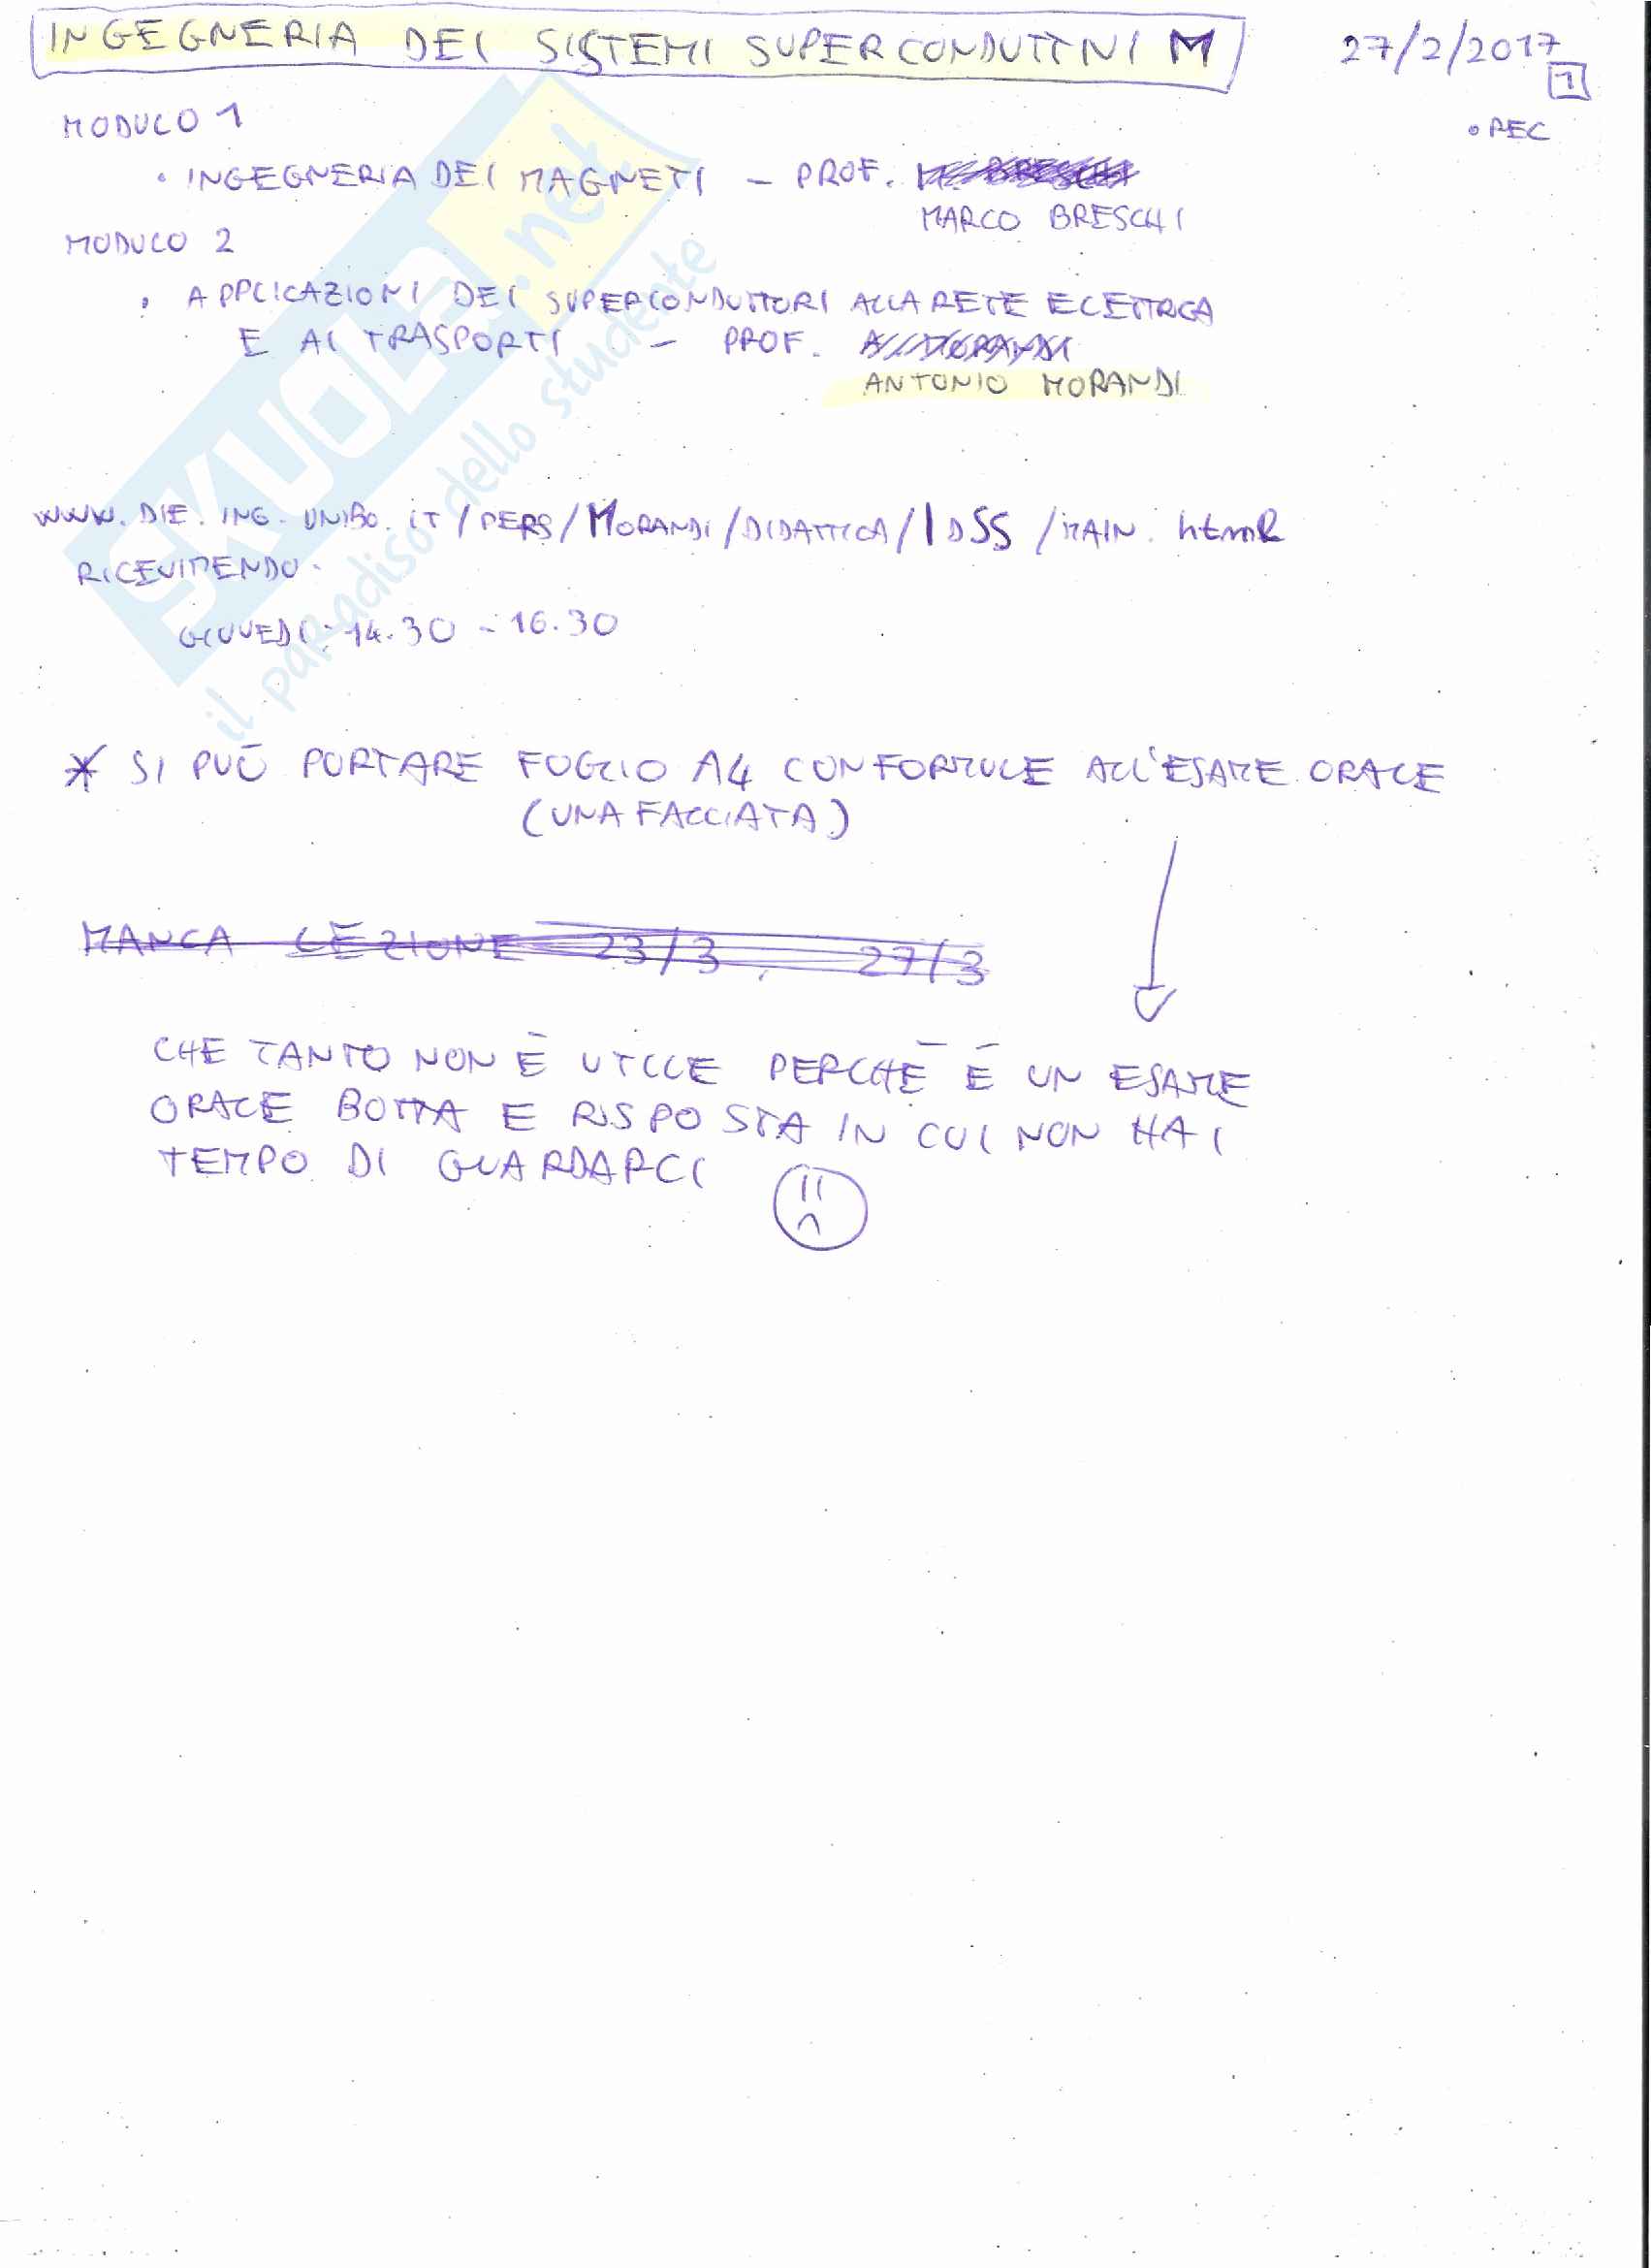 INGEGNERIA DEI SISTEMI SUPERCONDUTTIVI M 27/2/2017
1
MODULO 1
• REC
• INGEGNERIA DEI MAGNETI – PROF.
MARCO BRESCHI
MODULO 2
• APPLICAZIONI DEI SUPERCONDUTTORI ALLA RETE ELETTRICA
E AI TRASPORTI – PROF. A. MORANDI
ANTONIO MORANDI
WWW.DIE.ING.UNIBO.iT/PERS/MORANDi/DIDATTICA/IDSS/MAIN.html
RICEVIMENDO.
GIOVEDI: 14.30 - 16.30
* SI PUÒ PORTARE FOGLIO A4 CON FORMULE ALL'ESAME ORALE
(UNA FACCIATA)
MANCA LEZIONE 23/3, 27/3
CHE TANTO NON È UTILE PERCHÈ È UN ESAME
ORALE BOTTA E RISPOSTA IN CUI NON HAI
TEMPO DI GUARDARCI
SKUOLA.net
il paradiso dello studente